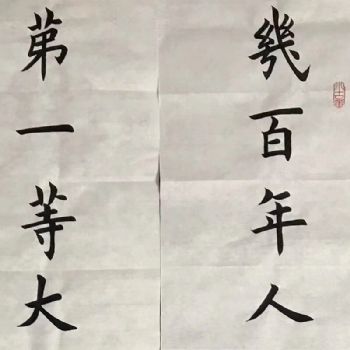 幾百年人
第一等大